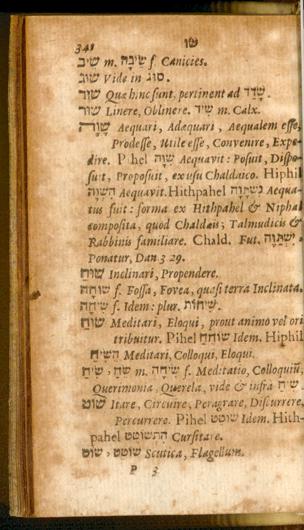 341 שׁו
שׂיב m. שֵׂיבָה f. Canicies.
שׂוג Vide in סוג.
שׂוד Quæ hinc sunt, pertinent ad שָׁדַד.
שׂוד Linere, Oblinere. שִׂיד m. Calx.
שָׁוָה Aequari, Adæquari, Aequalem esse,
Prodesse, Utile esse, Convenire, Expe-
dire. Pihel שִׁוָּה Aequavit: Posuit, Dispo-
suit, Proposuit, ex usu Chaldaico. Hiphil
הִשְׁוָה Aequavit. Hithpahel נִשְׁתַּוָּה Aequa-
tus fuit: forma ex Hithpahel & Niphal
composita, quod Chaldæis, Talmudicis &
Rabbinis familiare. Chald. Fut. יִשְׁתַּוֶּה
Ponatur, Dan. 3 29.
שׁוּחַ Inclinari, Propendere.
שׁוּחָה f. Fossa, Fovea, quasi terra Inclinata.
שִׁיחָה f. Idem: plur. שִׁיחוֹת.
שׂוּחַ Meditari, Eloqui, prout animo vel ori
tribuitur. Pihel שׂוֹחֵחַ Idem. Hiphil
הֵשִׂיחַ Meditari, Colloqui, Eloqui.
שֵׂחַ, שִׂיחַ m. שִׂיחָה f. Meditatio, Colloquiũ,
Querimonia, Querela, vide & infra שׂיח
שׁוּט Itare, Circuire, Peragrare, Discurrere,
Percurrere. Pihel שׁוֹטֵט Idem. Hith-
pahel הִתְשׁוֹטֵט Cursitare.
שׁוֹט, שׁוֹטֵט Scutica, Flagellum.
P 3